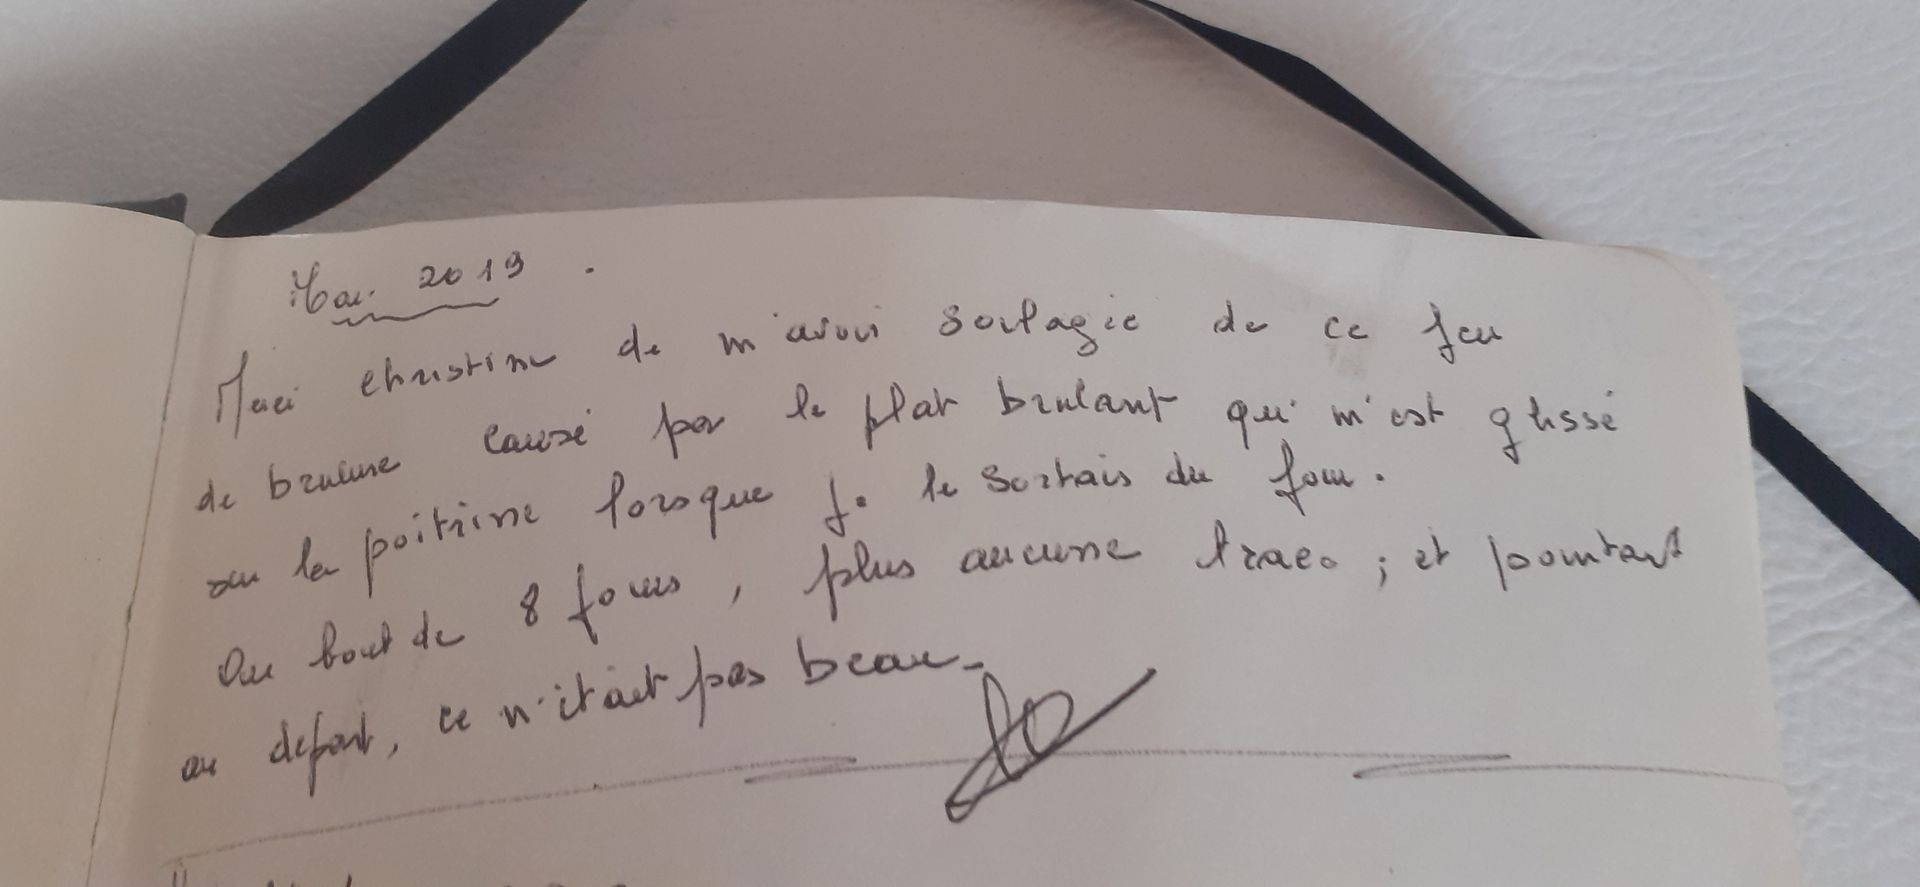 Mai 2019.
Merci Christine de m'avoir soulagée de ce feu
de brulure causé par le plat brulant qui m'est glissé
sur la poitrine lorsque je le sortais du four.
Au bout de 8 jours, plus aucune trace ; et pourtant
au départ, ce n'était pas beau -